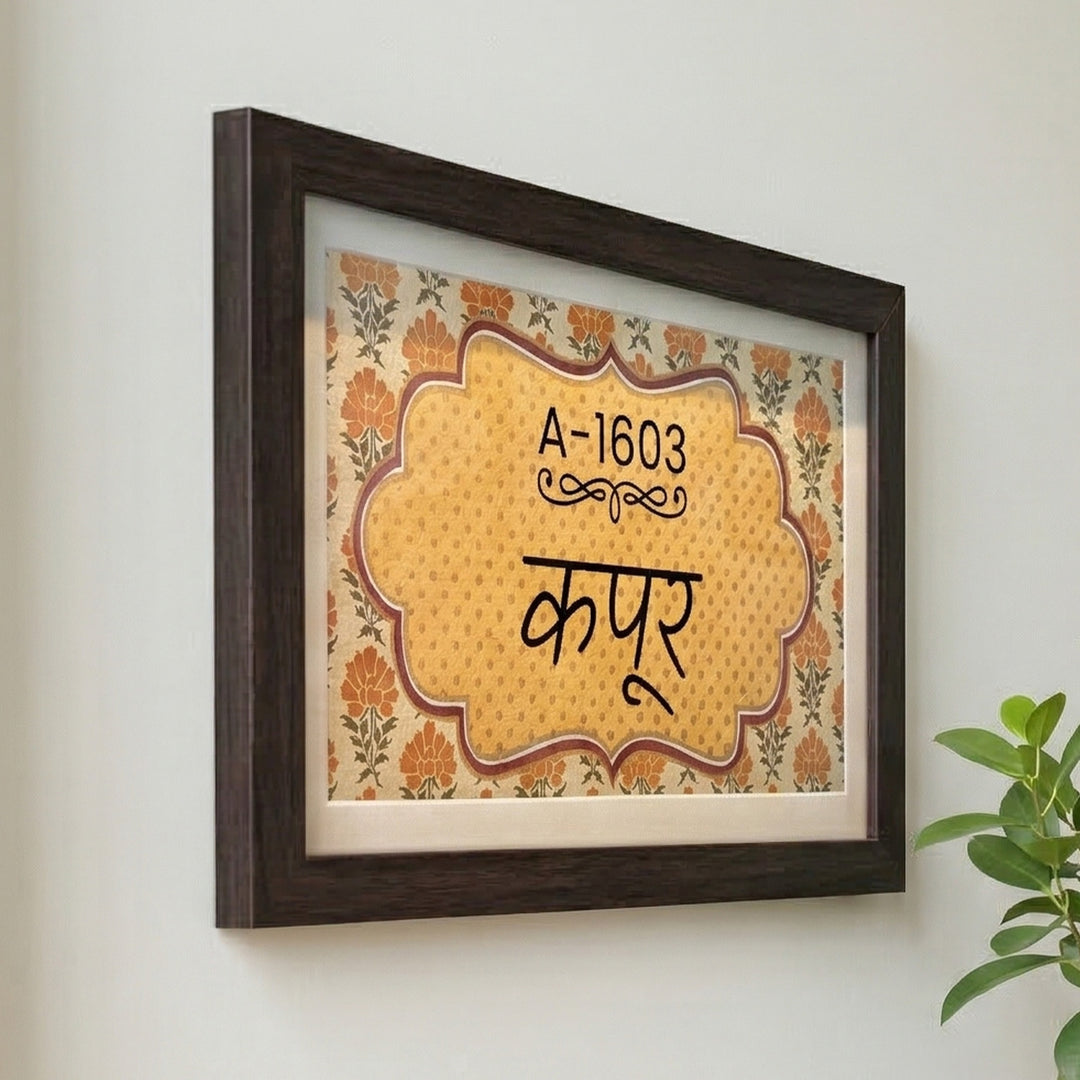 A-1603
कपूर